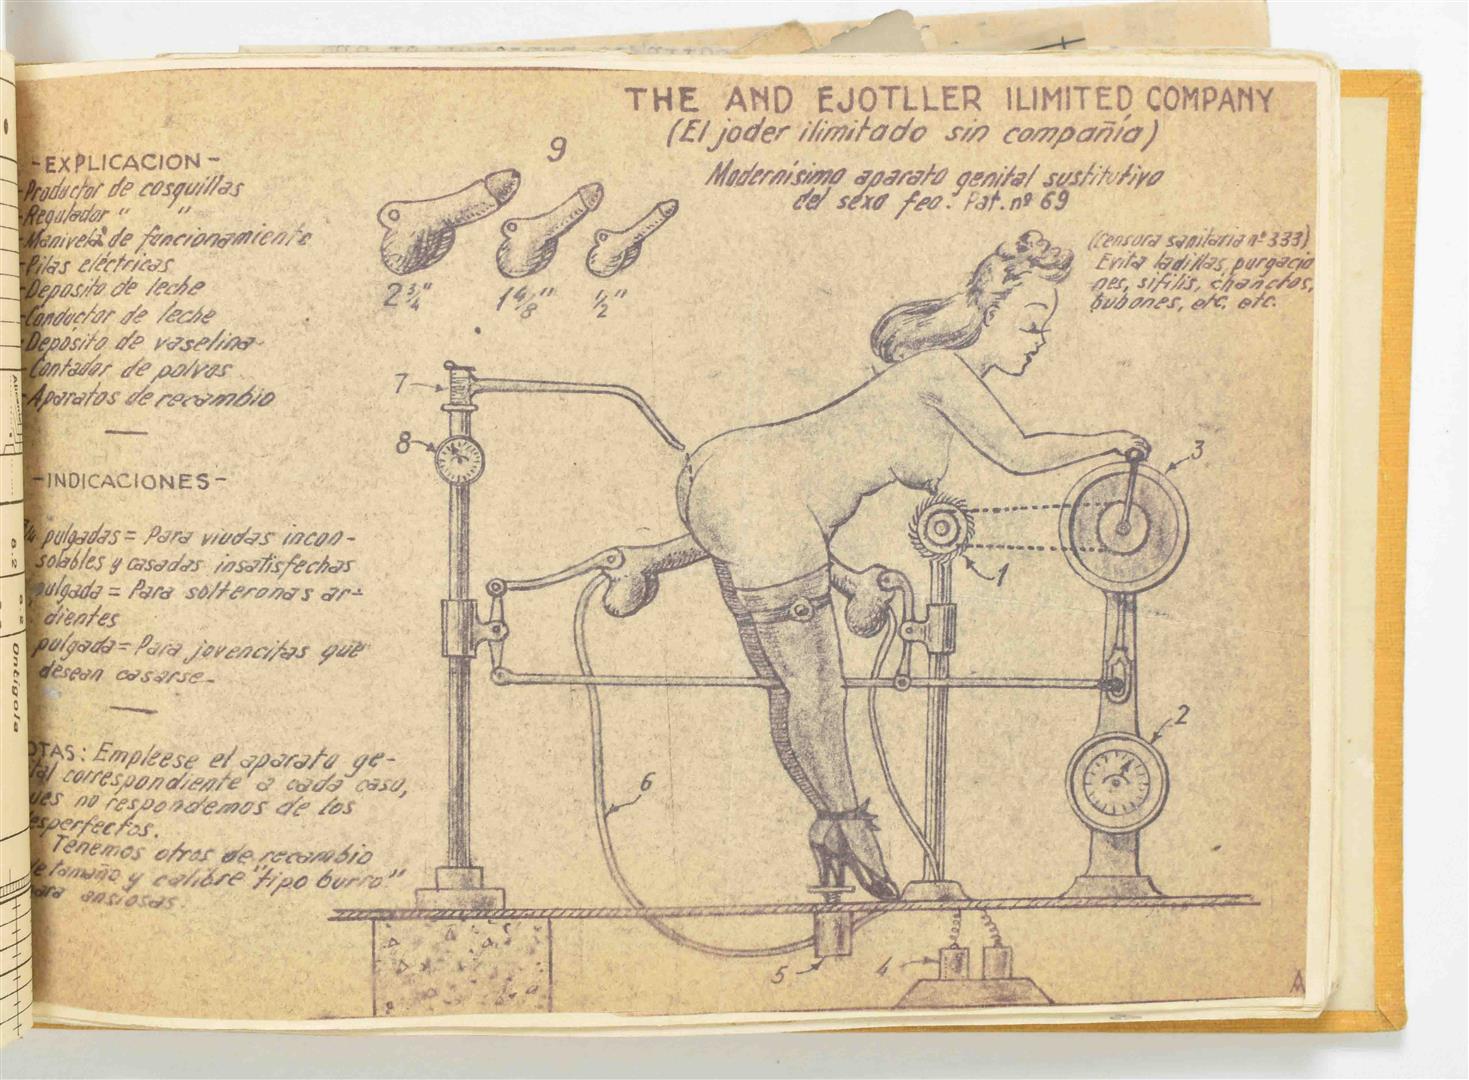 THE AND EJOTLLER ILIMITED COMPANY
(El joder ilimitado sin compañía)
Modernísimo aparato genital sustitutivo
del sexo feo: Pat. nº 69
(Censura sanitaria nº 333)
Evita ladillas, purgacio
nes, sífilis, chancros,
bubones, etc. etc.
9
2 3/4"
1 4/8"
1/2"
-EXPLICACION-
-Productor de cosquillas
-Regulador " "
-Manivela de funcionamiento
-Pilas eléctricas
-Deposito de leche
-Conductor de leche
-Depósito de vaselina
-Contador de polvos
-Aparatos de recambio
-INDICACIONES-
pulgadas = Para viudas incon-
solables y casadas insatisfechas
pulgada = Para solteronas ar-
dientes
pulgada = Para jovencitas que
desean casarse-
OTAS: Empleese el aparato ge-
tal correspondiente a cada caso,
ues no respondemos de los
esperfectos.
Tenemos otros de recambio
de tamaño y calibre "tipo burro"
para ansiosas.
7
8
3
1
2
6
5
4